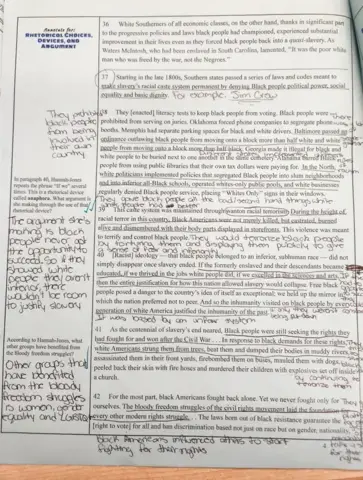 Annotate for:
RHETORICAL CHOICES,
DEVICES, AND
ARGUMENT
36 White Southerners of all economic classes, on the other hand, thanks in significant part
to the progressive policies and laws black people had championed, experienced substantial
improvement in their lives even as they forced black people back into a quasi-slavery. As
Waters McIntosh, who had been enslaved in South Carolina, lamented, "It was the poor white
man who was freed by the war, not the Negroes."
37 Starting in the late 1800s, Southern states passed a series of laws and codes meant to
make slavery's racial caste system permanent by denying Black people political power, social
equality and basic dignity. For example: Jim Crow
38 They [enacted] literacy tests to keep black people from voting. Black people were
prohibited from serving on juries. Oklahoma forced phone companies to segregate phone
booths. Memphis had separate parking spaces for black and white drivers. Baltimore passed an
ordinance outlawing black people from moving onto a block more than half white and white
people from moving onto a block more than half black. Georgia made it illegal for black and
white people to be buried next to one another in the same cemetery. Alabama barred black
people from using public libraries that their own tax dollars were paying for. In the North,
white politicians implemented policies that segregated Black people into slum neighborhoods
and into inferior all-Black schools, operated whites-only public pools, and white businesses
regularly denied Black people service, placing "Whites Only" signs in their windows.
They prohibited
black people
from being
involved in
their own
country
39 This caste system was maintained through wanton racial terrorism. During the height of
racial terror in this country, Black Americans were not merely killed but castrated, burned
alive and dismembered with their body parts displayed in storefronts. This violence was meant
to terrify and control black people. They would terrorize Black people
by terrifying them and displaying them publicly to give
In paragraph 40, Hannah-Jones
repeats the phrase "if we" several
times. This is a rhetorical device
called anaphora. What argument is
she making through the use of this
rhetorical device?
The argument she's
making is black
people never got
the opportunity to
succeed. So if they
showed white
people they aren't
inferior, there
wouldn't be room
to justify slavery
[Racist] ideology — that black people belonged to an inferior, subhuman race — did not
simply disappear once slavery ended. If the formerly enslaved and their descendants became
educated, if we thrived in the jobs white people did, if we excelled in the sciences and arts,
then the entire justification for how this nation allowed slavery would collapse. Free black
people posed a danger to the country's idea of itself as exceptional; we held up the mirror
which the nation preferred not to peer. And so the inhumanity visited on black people by every
generation of white America justified the inhumanity of the past.
It was biased by an unfair system
41 As the centennial of slavery's end neared, Black people were still seeking the rights they
had fought for and won after the Civil War... In response to black demands for these rights,
white Americans strung them from trees, beat them and dumped their bodies in muddy rivers,
assassinated them in their front yards, firebombed them on buses, mauled them with dogs,
peeled back their skin with fire hoses and murdered their children with explosives set off inside
a church.
According to Hannah-Jones, what
other groups have benefited from
the Bloody freedom struggles?
Other groups that
have benefited
from the bloody
freedom struggles
is women, gender
equality and
42 For the most part, black Americans fought back alone. Yet we never fought only for
ourselves. The bloody freedom struggles of the civil rights movement laid the foundation for
every other modern rights struggle. ... The laws born out of black resistance guarantee the
[right to vote] for all and ban discrimination based not just on race but on gender, nationality,
black Americans influenced others to start
fighting for their rights